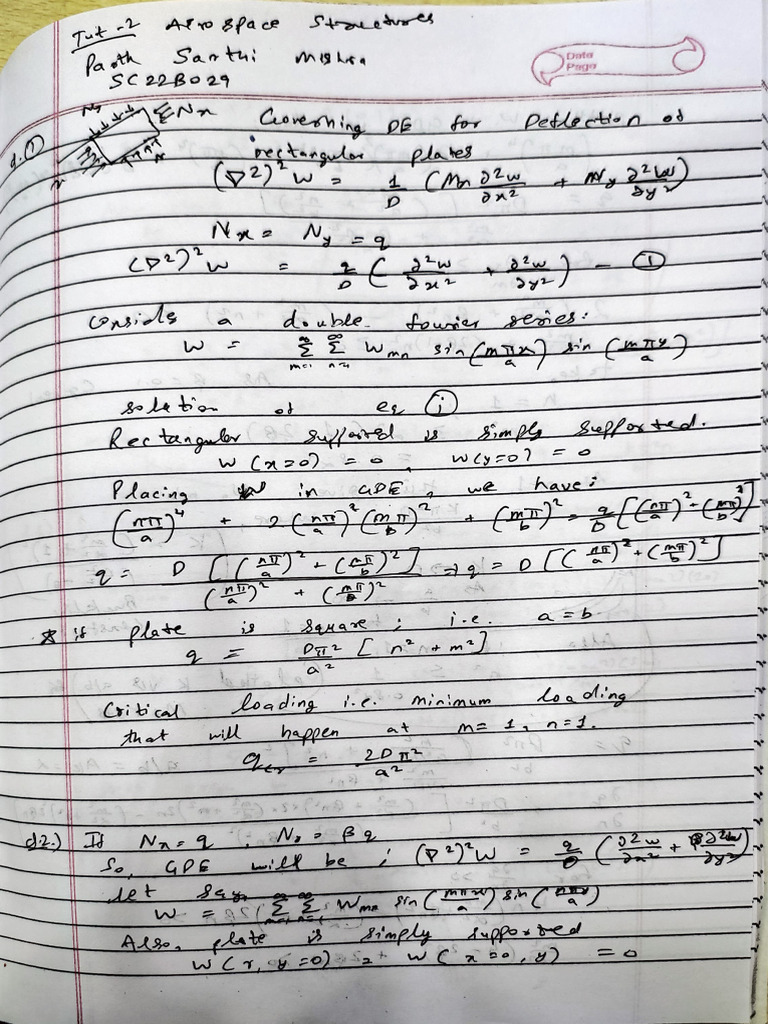 Tut-2 Aerospace Structures
Parth Sarthi Mishra
SC22B029
Data
Page
Q.① Nx Governing DE for Deflection of
rectangular plates
(∇²)² w = 1/D (Nx ∂²w/∂x² + Ny ∂²w/∂y²)
Nx = Ny = q
(∇²)² w = q/D (∂²w/∂x² + ∂²w/∂y²) — ①
Consider a double fourier series:
w = Σ(m=1, ∞) Σ(n=1, ∞) Wmn sin(mπx/a) sin(mπy/a)
solution of eq ①
Rectangular supported is simply supported.
W(x=0) = 0, W(y=0) = 0
Placing W in GDE, we have:
(nπ/a)⁴ + 2(nπ/a)²(mπ/b)² + (mπ/b)² = q/D [(nπ/a)² + (mπ/b)²]
q = D [(nπ/a)² + (mπ/b)²] / (nπ/a)² + (mπ/b)² ⇒ q = D [(nπ/a)² + (mπ/b)²]
* if plate is square; i.e. a = b.
q = Dπ²/a² [n² + m²]
Critical loading i.e. minimum loading
that will happen at m=1, n=1.
qcr = 2Dπ²/a²
Q.2.) If Nx = q, Ny = βq
So, GDE will be; (∇²)² W = q/D (∂²w/∂x² + β∂²w/∂y²)
let say,
W = Σ(m=1, ∞) Σ(n=1, ∞) Wmn sin(mπx/a) sin(nπy/a)
Also, plate is simply supported
W(x, y=0) = W(x=0, y) = 0